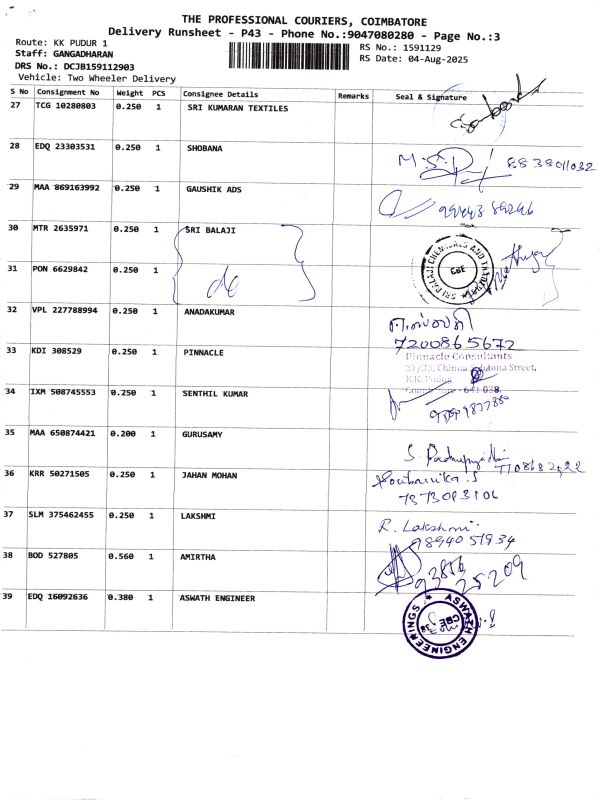 THE PROFESSIONAL COURIERS, COIMBATORE
Delivery Runsheet - P43 - Phone No.:9047080280 - Page No.:3
Route: KK PUDUR 1
RS No.: 1591129
Staff: GANGADHARAN
RS Date: 04-Aug-2025
DRS No.: DCJB159112903
Vehicle: Two Wheeler Delivery
S No Consignment No Weight PCS Consignee Details Remarks Seal & Signature
27 TCG 10280803 0.250 1 SRI KUMARAN TEXTILES
28 EDQ 23303531 0.250 1 SHOBANA
29 MAA 869163992 0.250 1 GAUSHIK ADS
30 MTR 2635971 0.250 1 SRI BALAJI
SRI BALAJI CHEMICALS AND
CBE
31 PON 6629842 0.250 1
de
32 VPL 227788994 0.250 1 ANADAKUMAR
7200865672
33 KDI 308529 0.250 1 PINNACLE
Pinnacle Consultants
Street,
K.K. Pudur
641 038.
34 IXM 508745553 0.250 1 SENTHIL KUMAR
35 MAA 650874421 0.200 1 GURUSAMY
36 KRR 50271505 0.250 1 JAHAN MOHAN
37 SLM 375462455 0.250 1 LAKSHMI
R. Lakshmi.
9894051934
38 BOD 527805 0.560 1 AMIRTHA
93856
25209
39 EDQ 16092636 0.380 1 ASWATH ENGINEER
ASWATH ENGINEERINGS
CBE
38